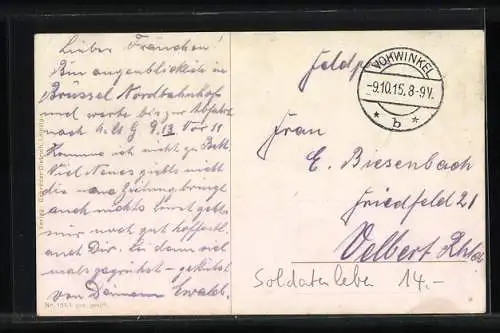 Lieber Fränchen!
Bin augenblicklich in
Brüssel Nordbahnhof
und warte bis zur Abfahrt
nach 9.13 Vor 11
Komme ich nicht zu Bett
Viel Neues giebts nicht
die neue Zeitung bringt
auch nichts Sonst gehts
mir noch gut hoffentl.
auch Dir. Sei denn viel
mals gegrüsst – geküsst
von Deinem Ewald.
Feldp
VOHWINKEL
-9.10.15.8-9V.
* b *
Frau
E. Biesenbach
Friedfeld 21
Velbert Rhld
Soldatenleben 14.-